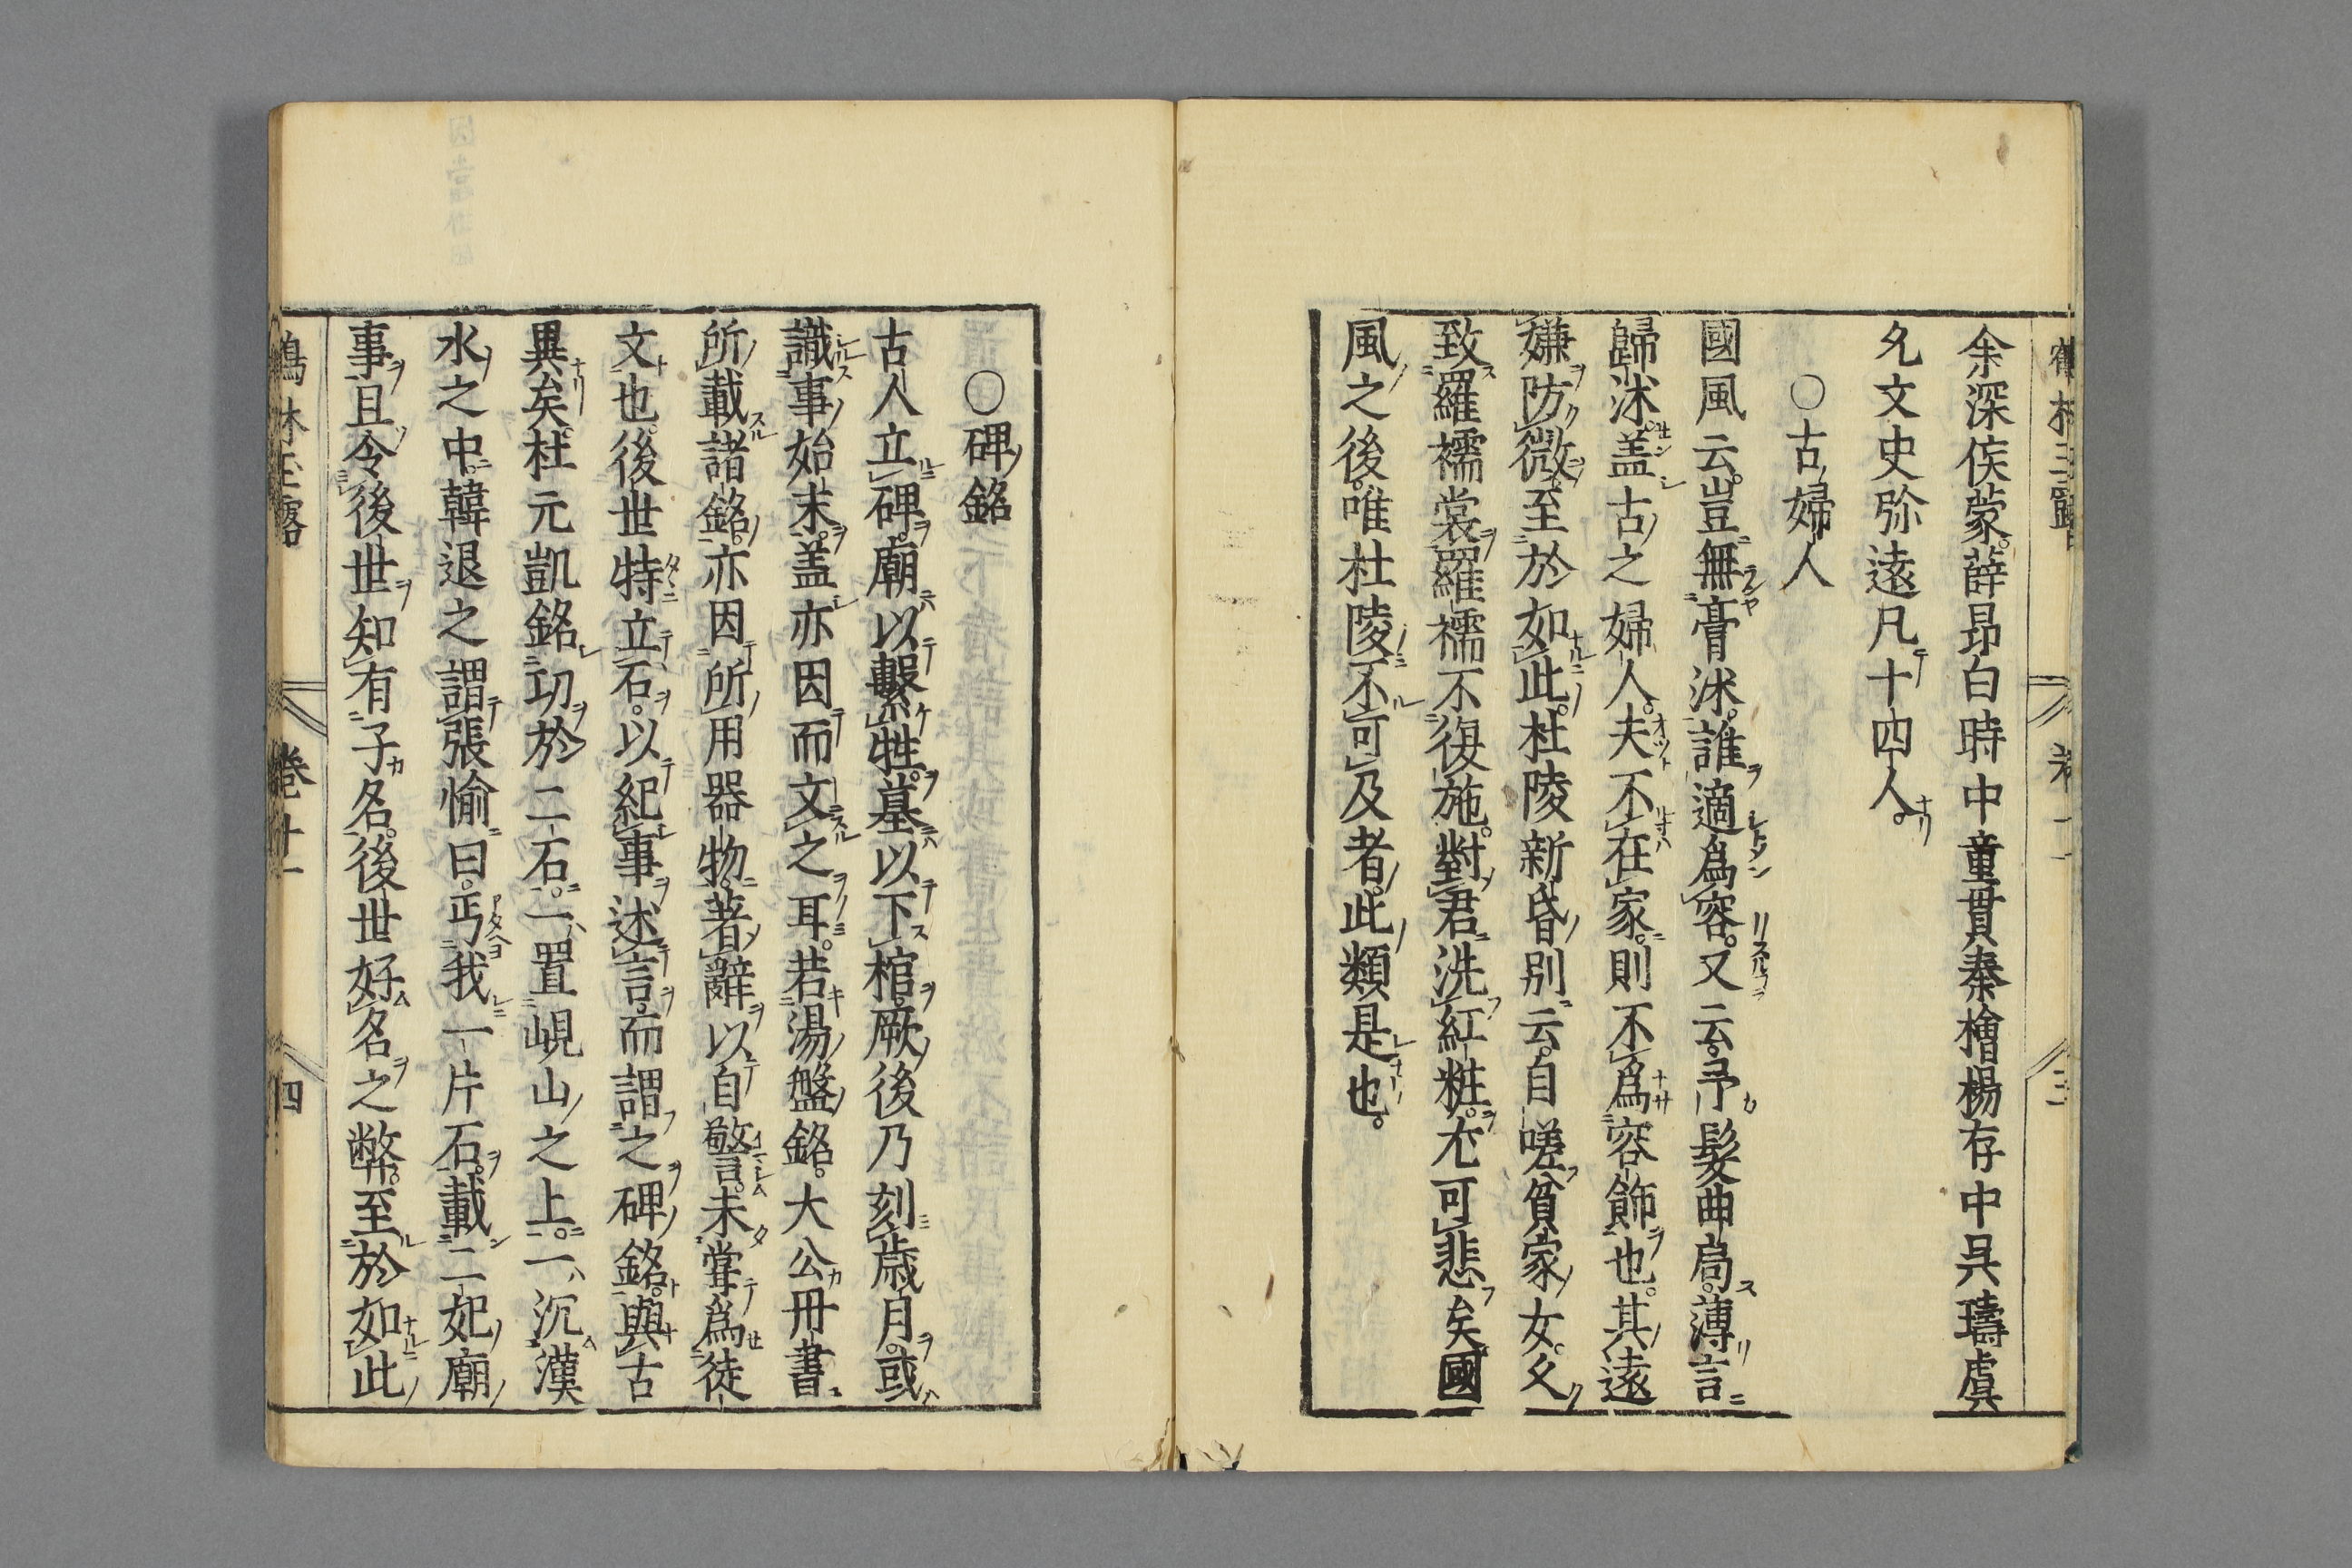 余深侯蒙薛昻白時中童貫秦檜楊存中呉璹虞
允文史弥遠凡十四人
〇古婦人
國風云豈無膏沐誰適爲容又云予髮曲局薄言
歸沐盖古之婦人夫不在家則不爲容飾也其遠
嫌防微至於如此杜陵新昏別云自嗟貧家女久
致羅襦裳羅襦不復施對君洗紅粧尤可悲矣國
風之後唯杜陵不可及者此類是也
〇碑銘
古人立碑廟以繫牲墓以下棺厥後乃刻歳月或
識事始末盖亦因而文之耳若湯盤銘大公冊書
所載諸銘亦因所用器物著辭以自警未甞爲徒
文也後世特立石以紀事述言而謂之碑銘與古
異矣杜元凱銘功於二石一置峴山之上一沉漢
水之中韓退之謂張愉曰丐我一片石載二妃廟
事且令後世知有子名後世好名之弊至於如此
鶴林玉露 巻十一 四